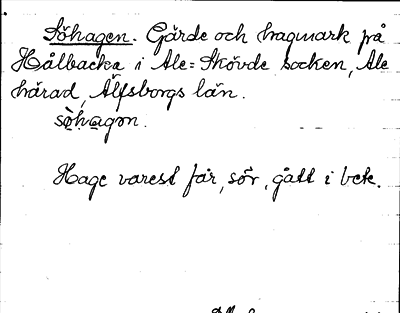 Söhagen. Gärde och hagmark på
Hålbacka i Ale=Skövde socken, Ale
härad, Älfsborgs län.
sö̀hagon.
Hage varest får, sör, gått i bek.